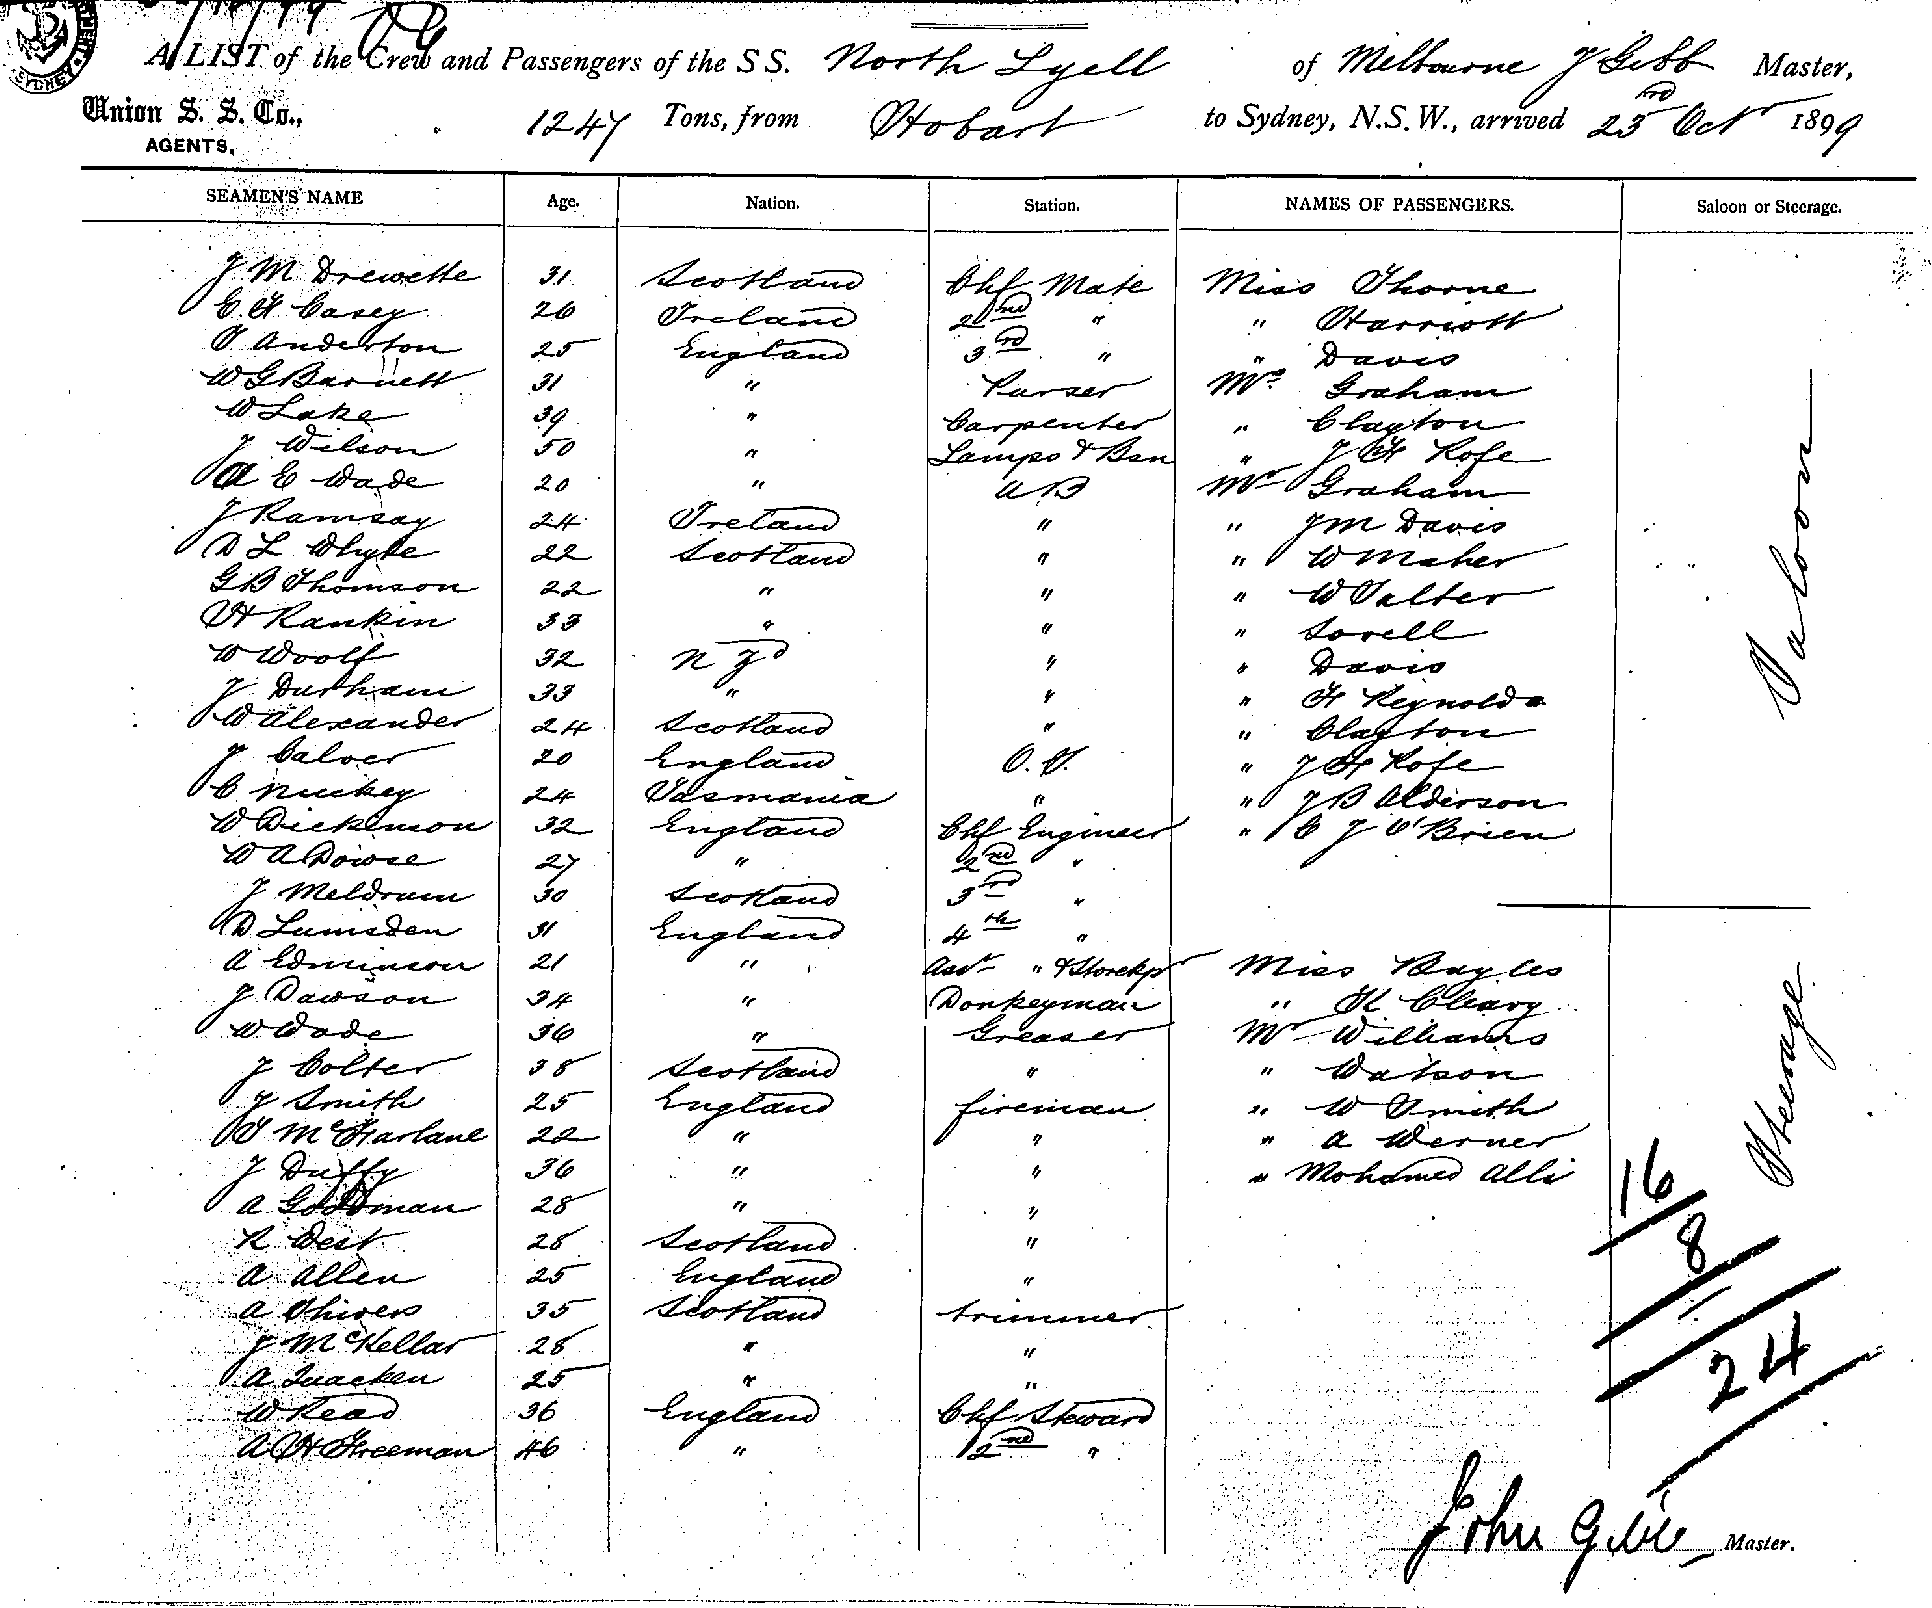 SYDNEY
A LIST of the Crew and Passengers of the S S. North Lyell of Melbourne J Gibb Master,
Union S. S. Co., 1247 Tons, from Hobart to Sydney, N.S.W., arrived 23rd Oct 1899
AGENTS.
SEAMEN'S NAME Age. Nation. Station. NAMES OF PASSENGERS. Saloon or Steerage.
J M Drewette 31 Scotland Chf Mate Miss Thorne
C. H Casey 26 Ireland 2nd " " Harriott
T Anderton 25 England 3rd " " Davis
W G Barnett 31 " Purser Mrs Graham
W Lake 39 " Carpenter " Clayton
J Wilson 50 " Lamps & Bsn " J H Rofe
A E Wade 20 " A B Mr Graham
J Ramsay 24 Ireland " " J M Davis
D L Whyte 22 Scotland " " W Maher
G B Thomson 22 " " " W Salter
H Rankin 33 " " " Sorell
W Woolf 32 N Zd " " Davis
J Durham 33 " " " H Reynolds
W Alexander 24 Scotland " " Clayton
J Calver 20 England O.S. " J H Rofe
C 24 Tasmania " " J B Alderson
W Dickinson 32 England Chf Engineer " C J O'Brien
W A Dowse 27 " 2nd "
J Meldrum 30 Scotland 3rd "
D Lumsden 31 England 4th "
A Edminson 21 " Asst " & Storekpr Miss Bayles
J Dawson 34 " Donkeyman " K Cleary
W Wade 36 " Greaser Mr Williams
J Colter 38 Scotland " " Watson
J Smith 25 England fireman " W Smith
T McFarlane 22 " " " A Werner
J Duffy 36 " " " Mohamed Alli
A Goodman 28 " "
R West 28 Scotland "
A Allen 25 England "
A Shivers 35 Scotland trimmer
J McKellar 28 " "
A 25 " "
W Read 36 England Chf Steward
A H Freeman 46 " 2nd "
Saloon
Steerage
16
8
24
John Gibb Master.